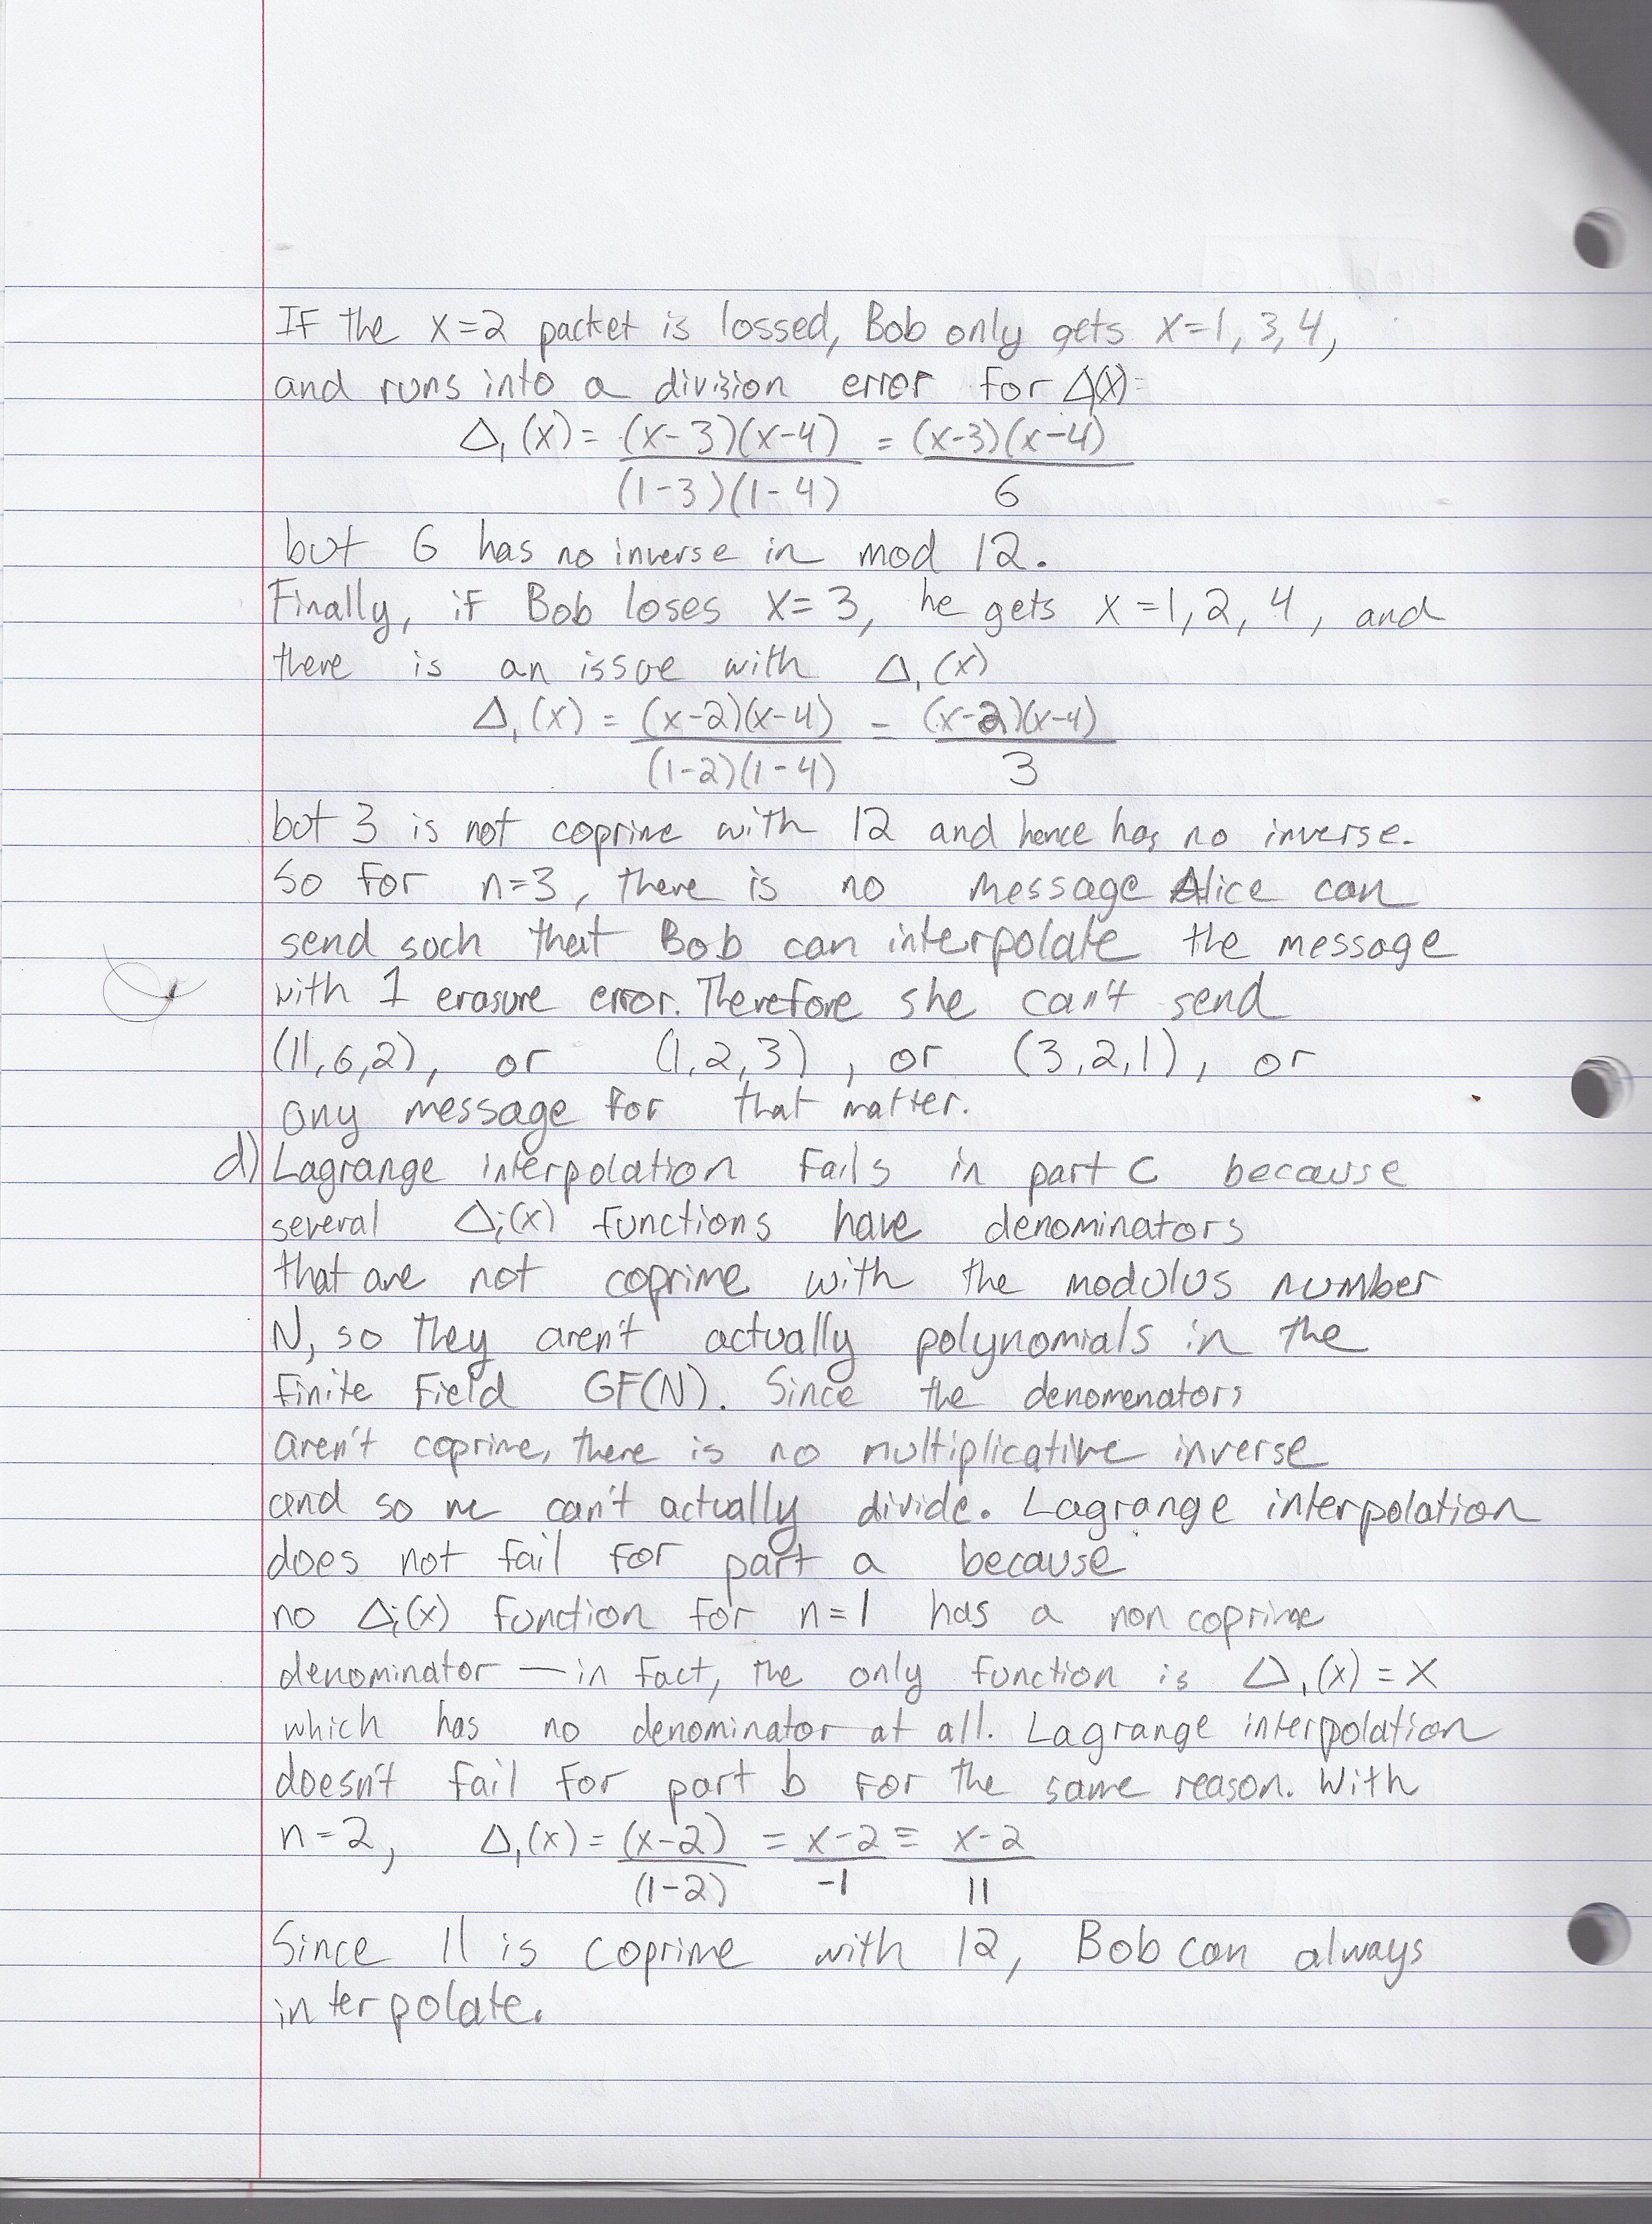 If the x=2 packet is lossed, Bob only gets x=1, 3, 4,
and runs into a division error for Δ(x)=
Δ₁(x) = (x-3)(x-4) / (1-3)(1-4) = (x-3)(x-4) / 6
but 6 has no inverse in mod 12.
Finally, if Bob loses x=3, he gets x=1, 2, 4, and
there is an issue with Δ₁(x)
Δ₁(x) = (x-2)(x-4) / (1-2)(1-4) = (x-2)(x-4) / 3
but 3 is not coprime with 12 and hence has no inverse.
So for n=3, there is no message Alice can
send such that Bob can interpolate the message
with 1 erasure error. Therefore she can't send
(11,6,2), or (1,2,3), or (3,2,1), or
any message for that matter.
d) Lagrange interpolation fails in part c because
several Δᵢ(x) functions have denominators
that are not coprime with the modulus number
N, so they aren't actually polynomials in the
finite field GF(N). Since the denomenators
aren't coprime, there is no multiplicative inverse
and so we can't actually divide. Lagrange interpolation
does not fail for part a because
no Δᵢ(x) function for n=1 has a non coprime
denominator — in fact, the only function is Δ₁(x) = x
which has no denominator at all. Lagrange interpolation
doesn't fail for part b for the same reason. With
n=2, Δ₁(x) = (x-2) / (1-2) = x-2 / -1 ≡ x-2 / 11
Since 11 is coprime with 12, Bob can always
interpolate.